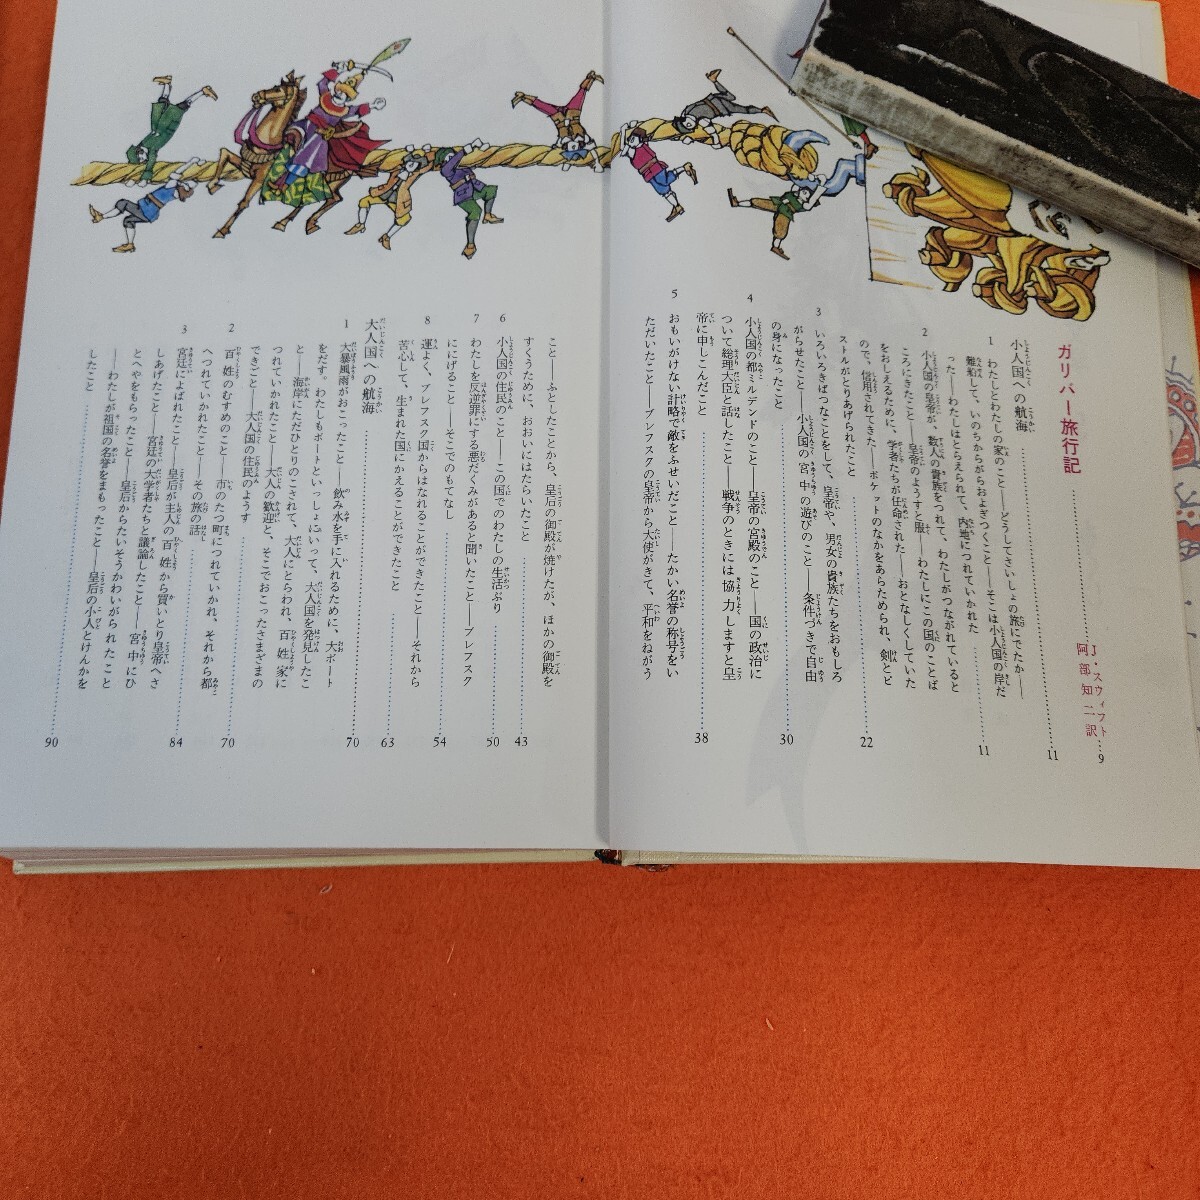 ガリバー旅行記……9
J・スウィフト
阿部知二訳
小人国への航海……11
1 わたしとわたしの家のこと――どうしてさいしょの旅にでたか――
難船して、いのちからがらおよぎつくこと――そこは小人国の岸だ
った――わたしはとらえられて、内地につれていかれた……11
2 小人国の皇帝が、数人の貴族をつれて、わたしがつながれていると
ころにきたこと――皇帝のようすと服――わたしにこの国のことば
をおしえるために、学者たちが任命された――おとなしくしていた
ので、信用されてきた――ポケットのなかをあらためられ、剣とピ
ストルがとりあげられたこと……22
3 いろいろきばつなことをして、皇帝や、男女の貴族たちをおもしろ
がらせたこと――小人国の宮中の遊びのこと――条件づきで自由
の身になったこと……30
4 小人国の都ミルデンドのこと――皇帝の宮殿のこと――国の政治に
ついて総理大臣と話したこと――戦争のときには協力しますと皇
帝に申しこんだこと……38
5 おもいがけない計略で敵をふせいだこと――たかい名誉の称号をい
ただいたこと――ブレフスクの皇帝から大使がきて、平和をねがう
こと――ふとしたことから、皇后の御殿が焼けたが、ほかの御殿を
すくうために、おおいにはたらいたこと……43
6 小人国の住民のこと――この国でのわたしの生活ぶり……50
7 わたしを反逆罪にする悪だくみがあると聞いたこと――ブレフスク
ににげること――そこでのもてなし……54
8 運よく、ブレフスク国からはなれることができたこと――それから
苦心して、生まれた国にかえることができたこと……63
大人国への航海……70
1 大暴風雨がおこったこと――飲み水を手に入れるために、大ボート
をだす。わたしもボートといっしょにいって、大人国を発見したこ
と――海岸にただひとりのこされて、大人にとらわれ、百姓家に
つれていかれたこと――大人の歓迎と、そこでおこったさまざまの
できごと――大人国の住民のようす……70
2 百姓のむすめのこと――市のたつ町につれていかれ、それから都
へつれていかれたこと――その旅の話……84
3 宮廷によばれたこと――皇后が主人の百姓から買いとり皇帝へさ
しあげたこと――宮廷の大学者たちと議論したこと――宮中にひ
とへやをもらったこと――皇后からたいそうかわいがられたこと
――わたしが祖国の名誉をまもったこと――皇后の小人とけんかを
したこと……90